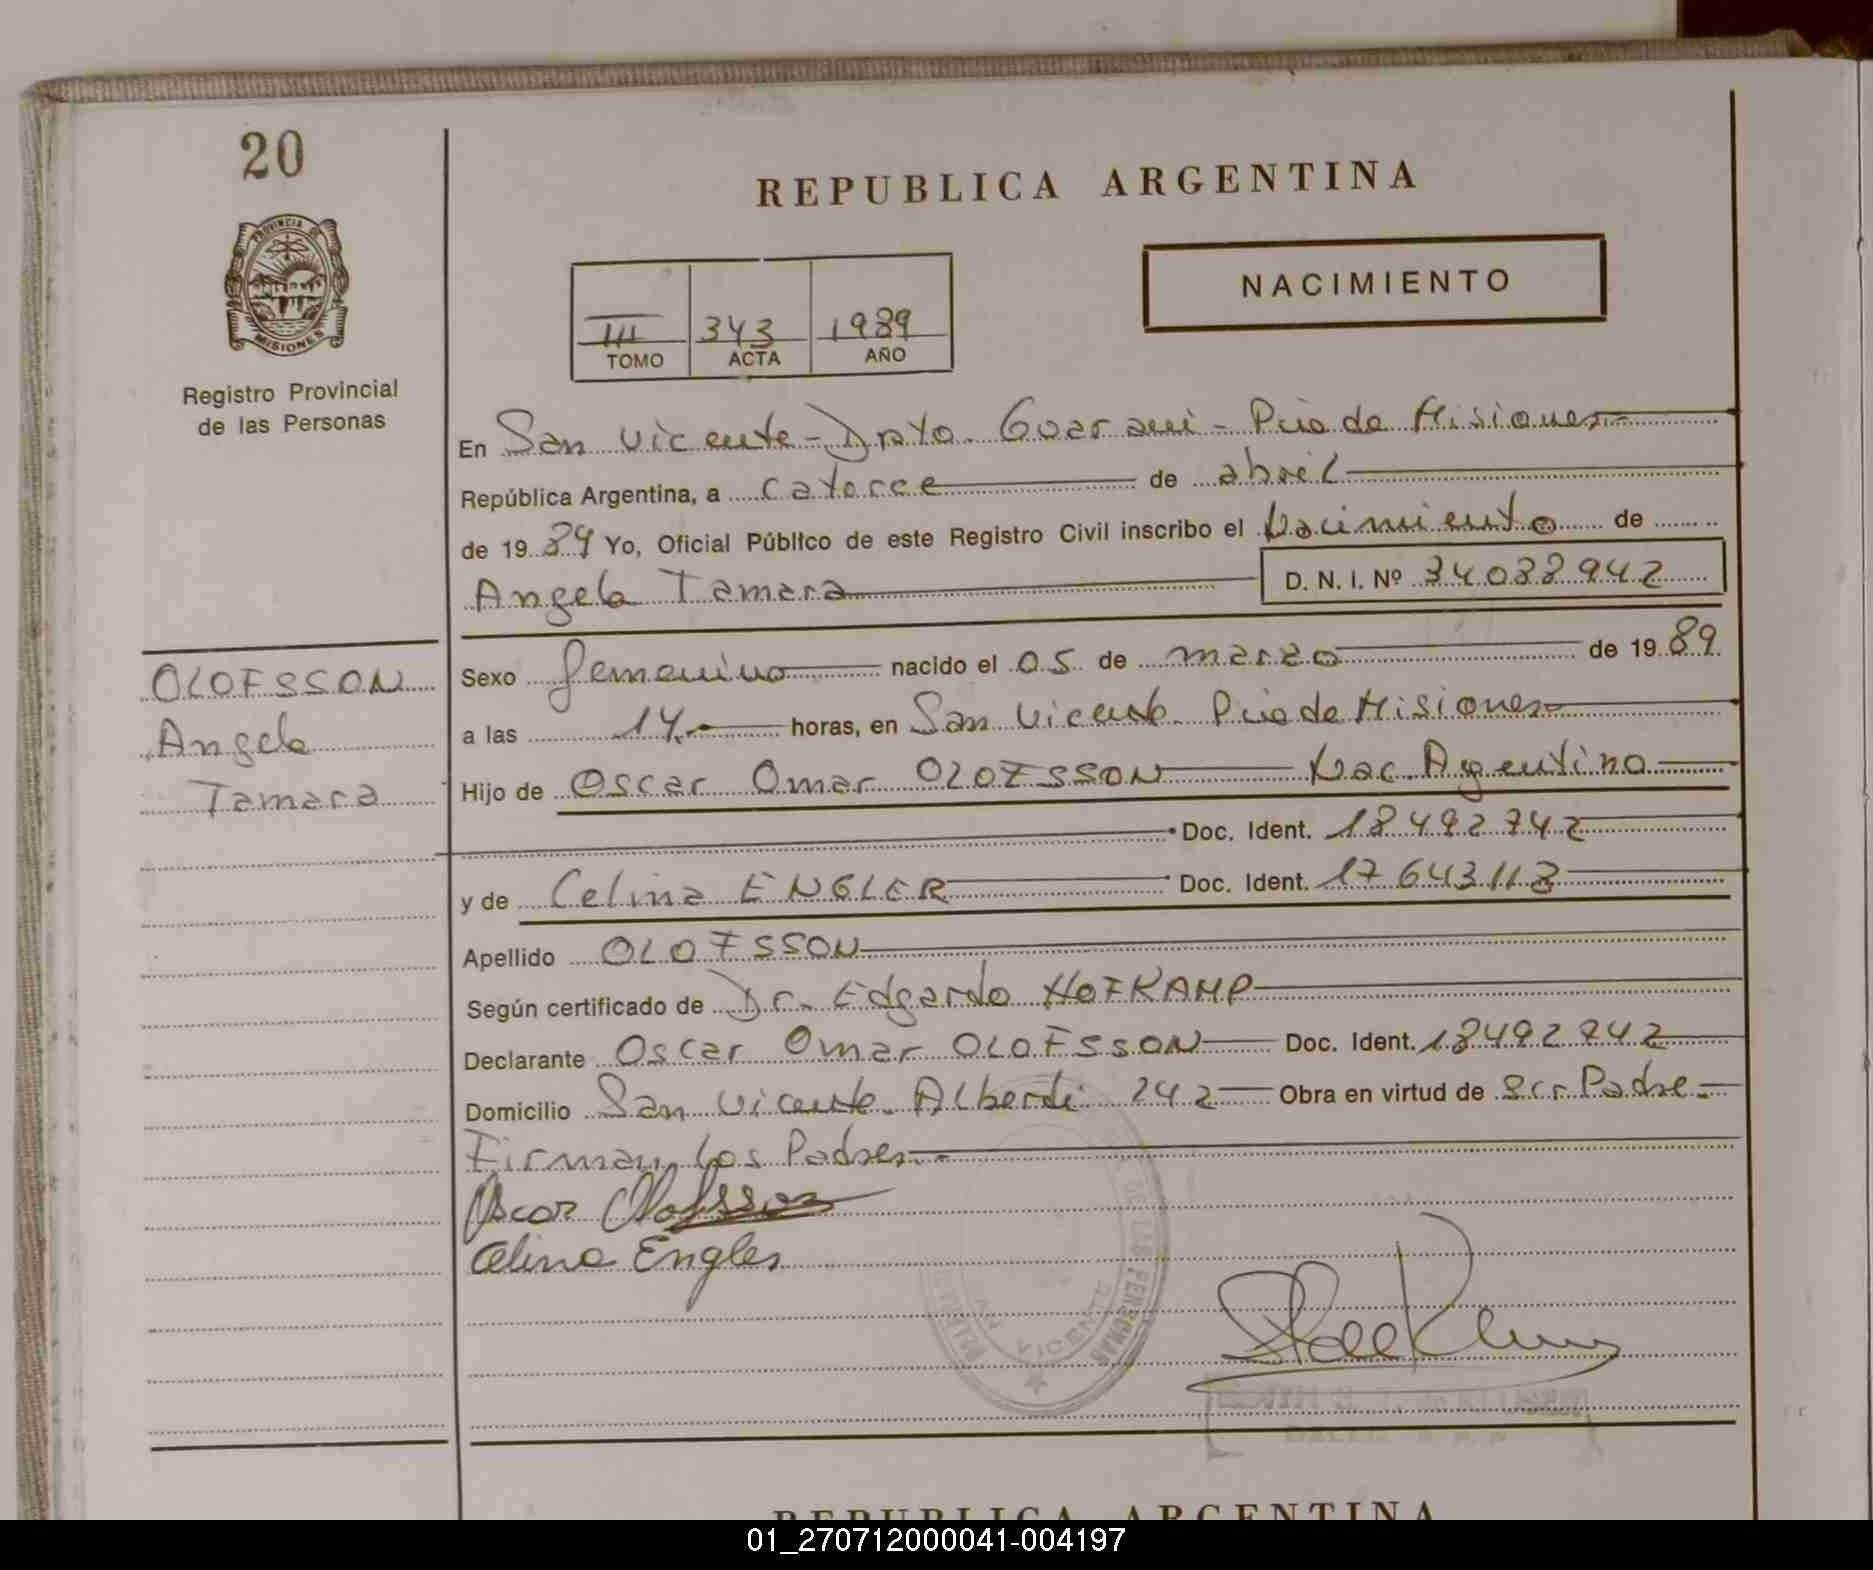 20
PROVINCIA DE
MISIONES
Registro Provincial
de las Personas
REPUBLICA ARGENTINA
NACIMIENTO
III 343 1989
TOMO ACTA AÑO
En San Vicente - Dpto. Guarani - Pcia de Misiones
República Argentina, a catorce de abril
de 1989 Yo, Oficial Público de este Registro Civil inscribo el Nacimiento de
Angela Tamara D. N. I. Nº 34038942
OLOFSSON
Angela
Tamara
Sexo femenino nacido el 05 de marzo de 1989
a las 14 horas, en San Vicente Pcia de Misiones
Hijo de Oscar Omar OLOFSSON Nac. Argentino
Doc. Ident. 18492742
y de Celina ENGLER Doc. Ident. 17643113
Apellido OLOFSSON
Según certificado de Dr. Edgardo HOFKAMP
Declarante Oscar Omar OLOFSSON Doc. Ident. 18492742
Domicilio San Vicente. Alberdi 242 Obra en virtud de ser Padre
Firman los Padres.
Oscar Olofsson
Celina Engler
DE LAS PERSONAS
VICENTE
REPUBLICA ARGENTINA
01_270712000041-004197